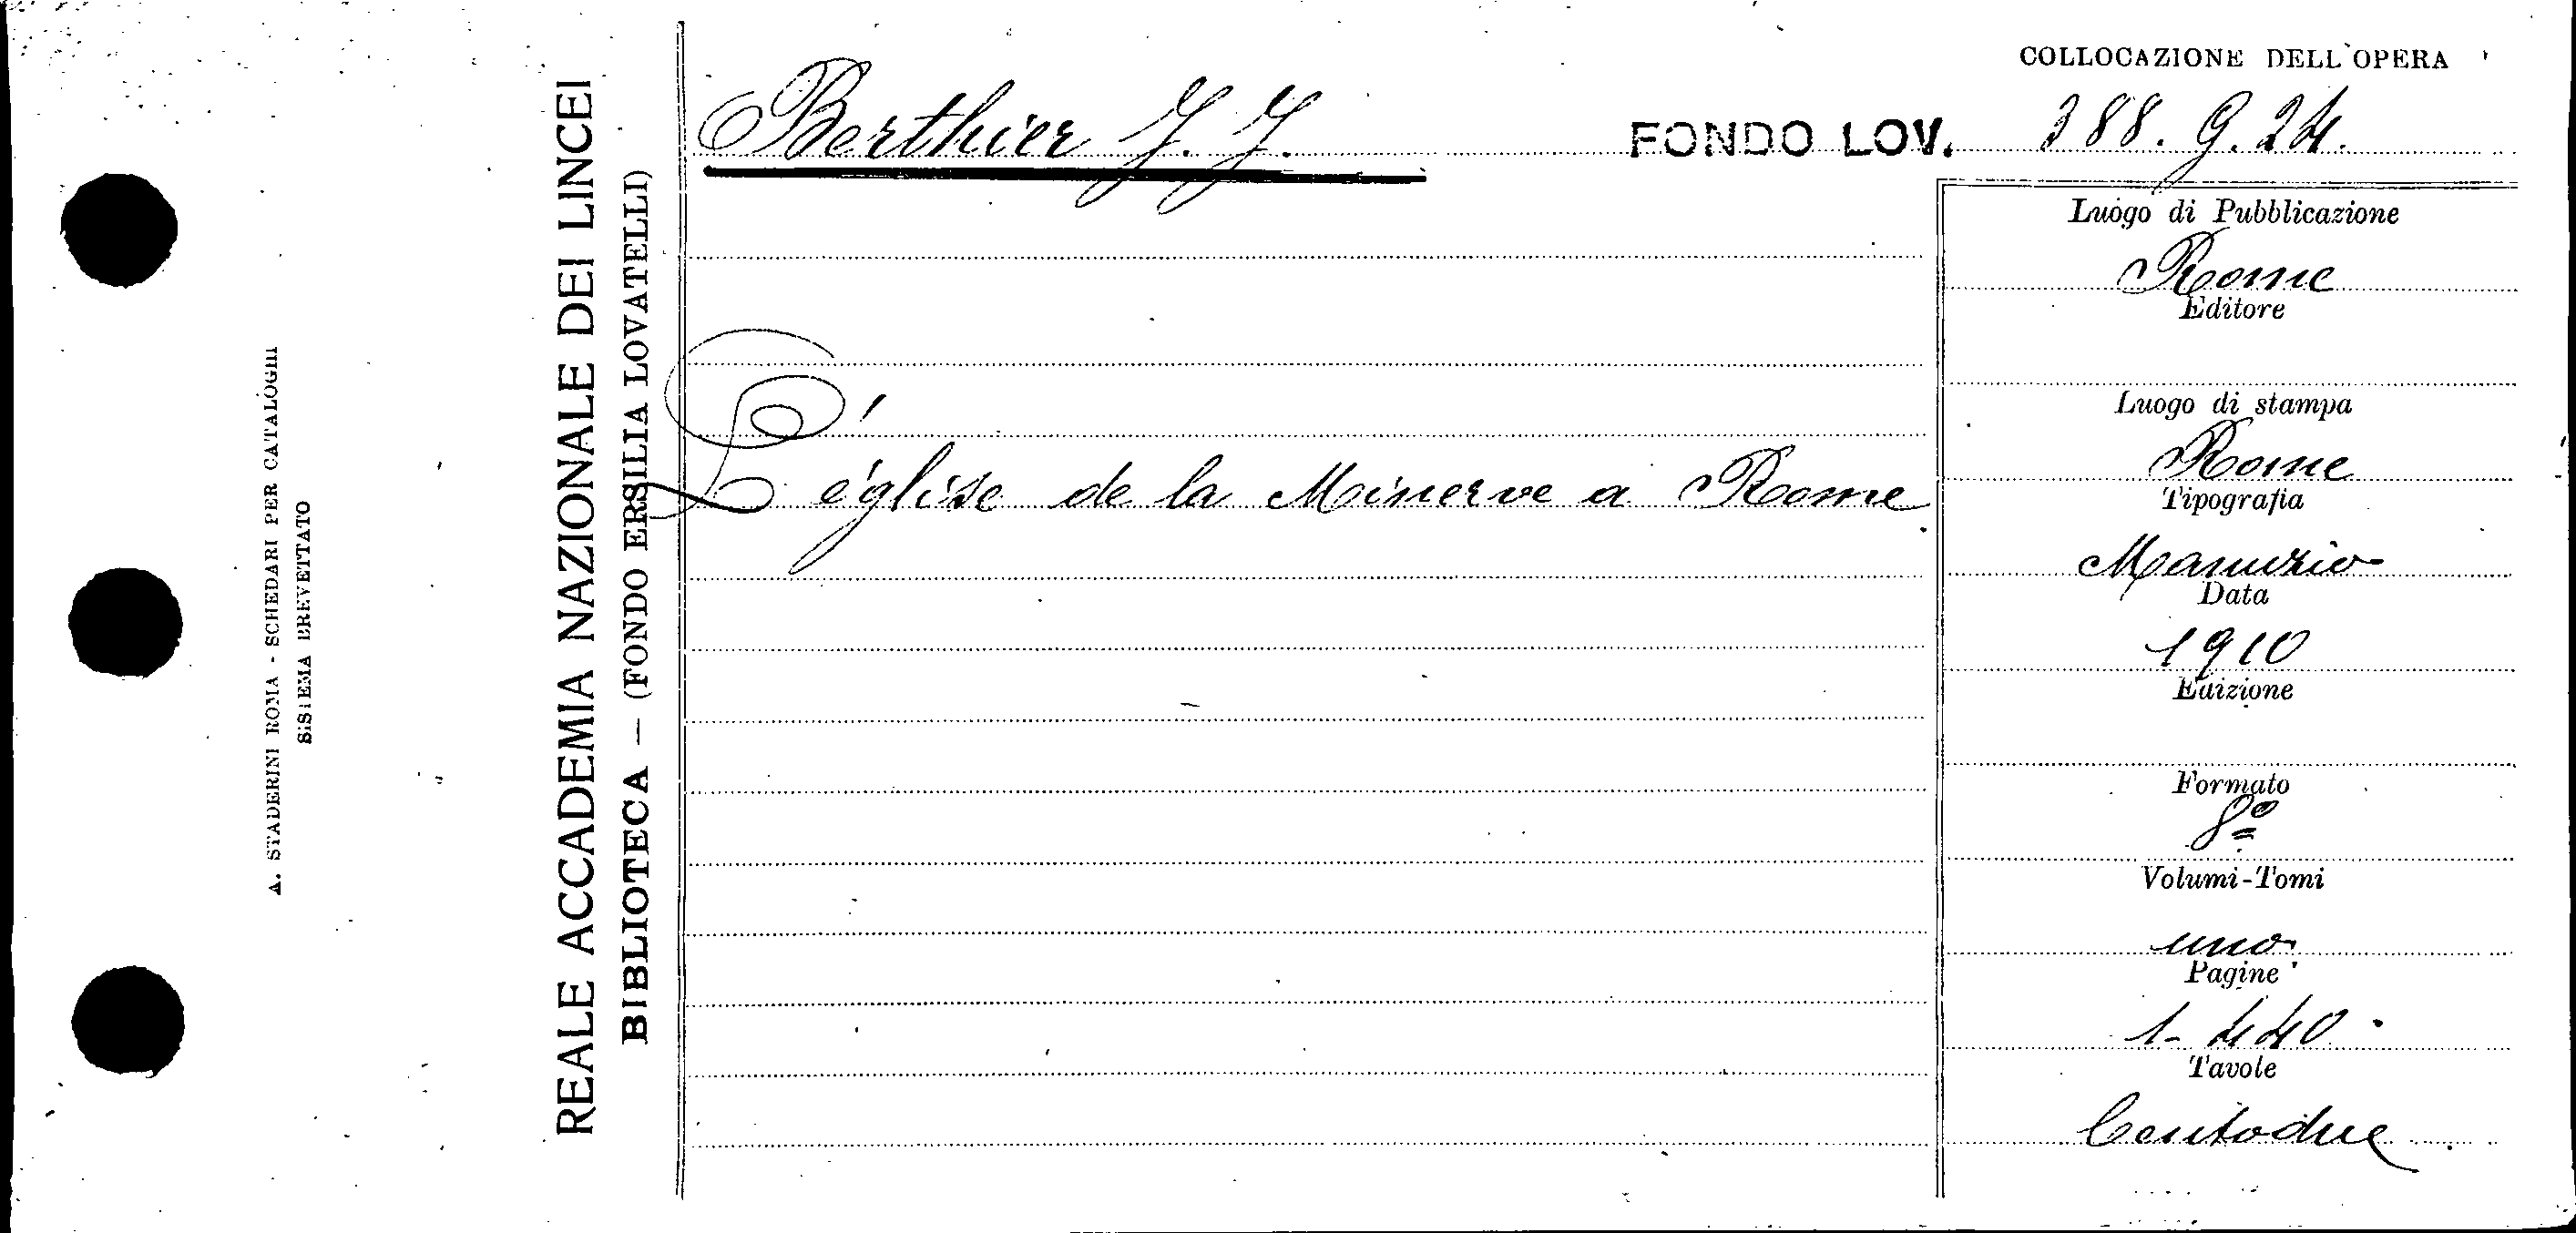 COLLOCAZIONE DELL'OPERA
Berthier J. J.
FONDO LOV. 388. G. 24.
L'église de la Minerve a Rome
Luogo di Pubblicazione
Rome
Editore
Luogo di stampa
Rome
Tipografia
Manuzio
Data
1910
Edizione
Formato
8º
Volumi-Tomi
uno
Pagine
1-440
Tavole
Centodue
REALE ACCADEMIA NAZIONALE DEI LINCEI
BIBLIOTECA — (FONDO ERSILIA LOVATELLI)
A. STADERINI ROMA - SCHEDARI PER CATALOGHI
SISTEMA BREVETTATO